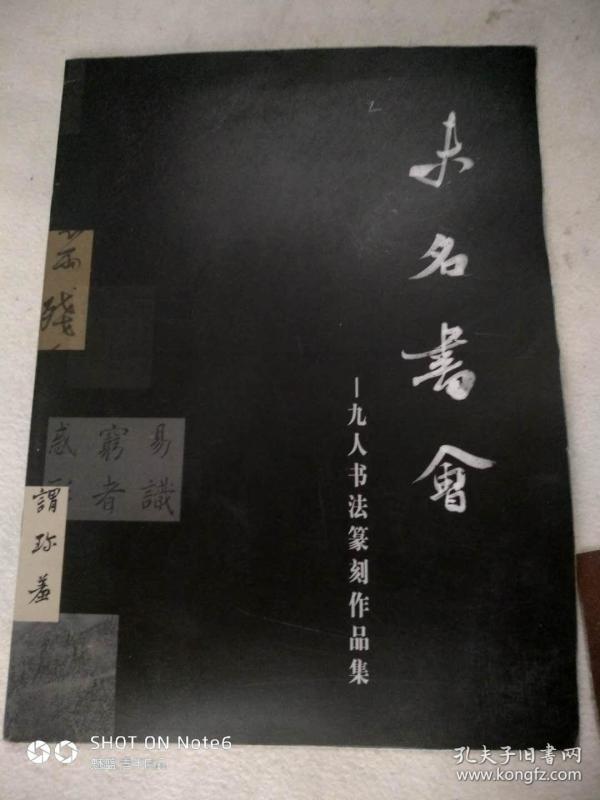 未名書會
—九人书法篆刻作品集
残
易識
窮者
感
謂珎羞
SHOT ON Note6
魅蓝
孔夫子旧书网
www.kongfz.com